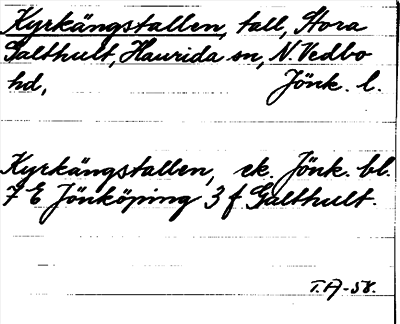 Kyrkängstallen, tall, Stora
Galthult, Haurida sn, N. Vedbo
hd, Jönk. l.
Kyrkängstallen, ek. Jönk. bl.
7 E Jönköping 3 f Galthult.
T.A-58.